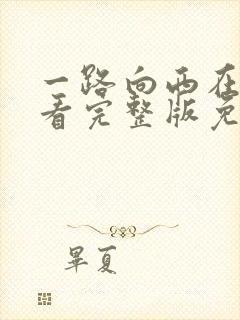 一路向西在
看完整版免
毕夏